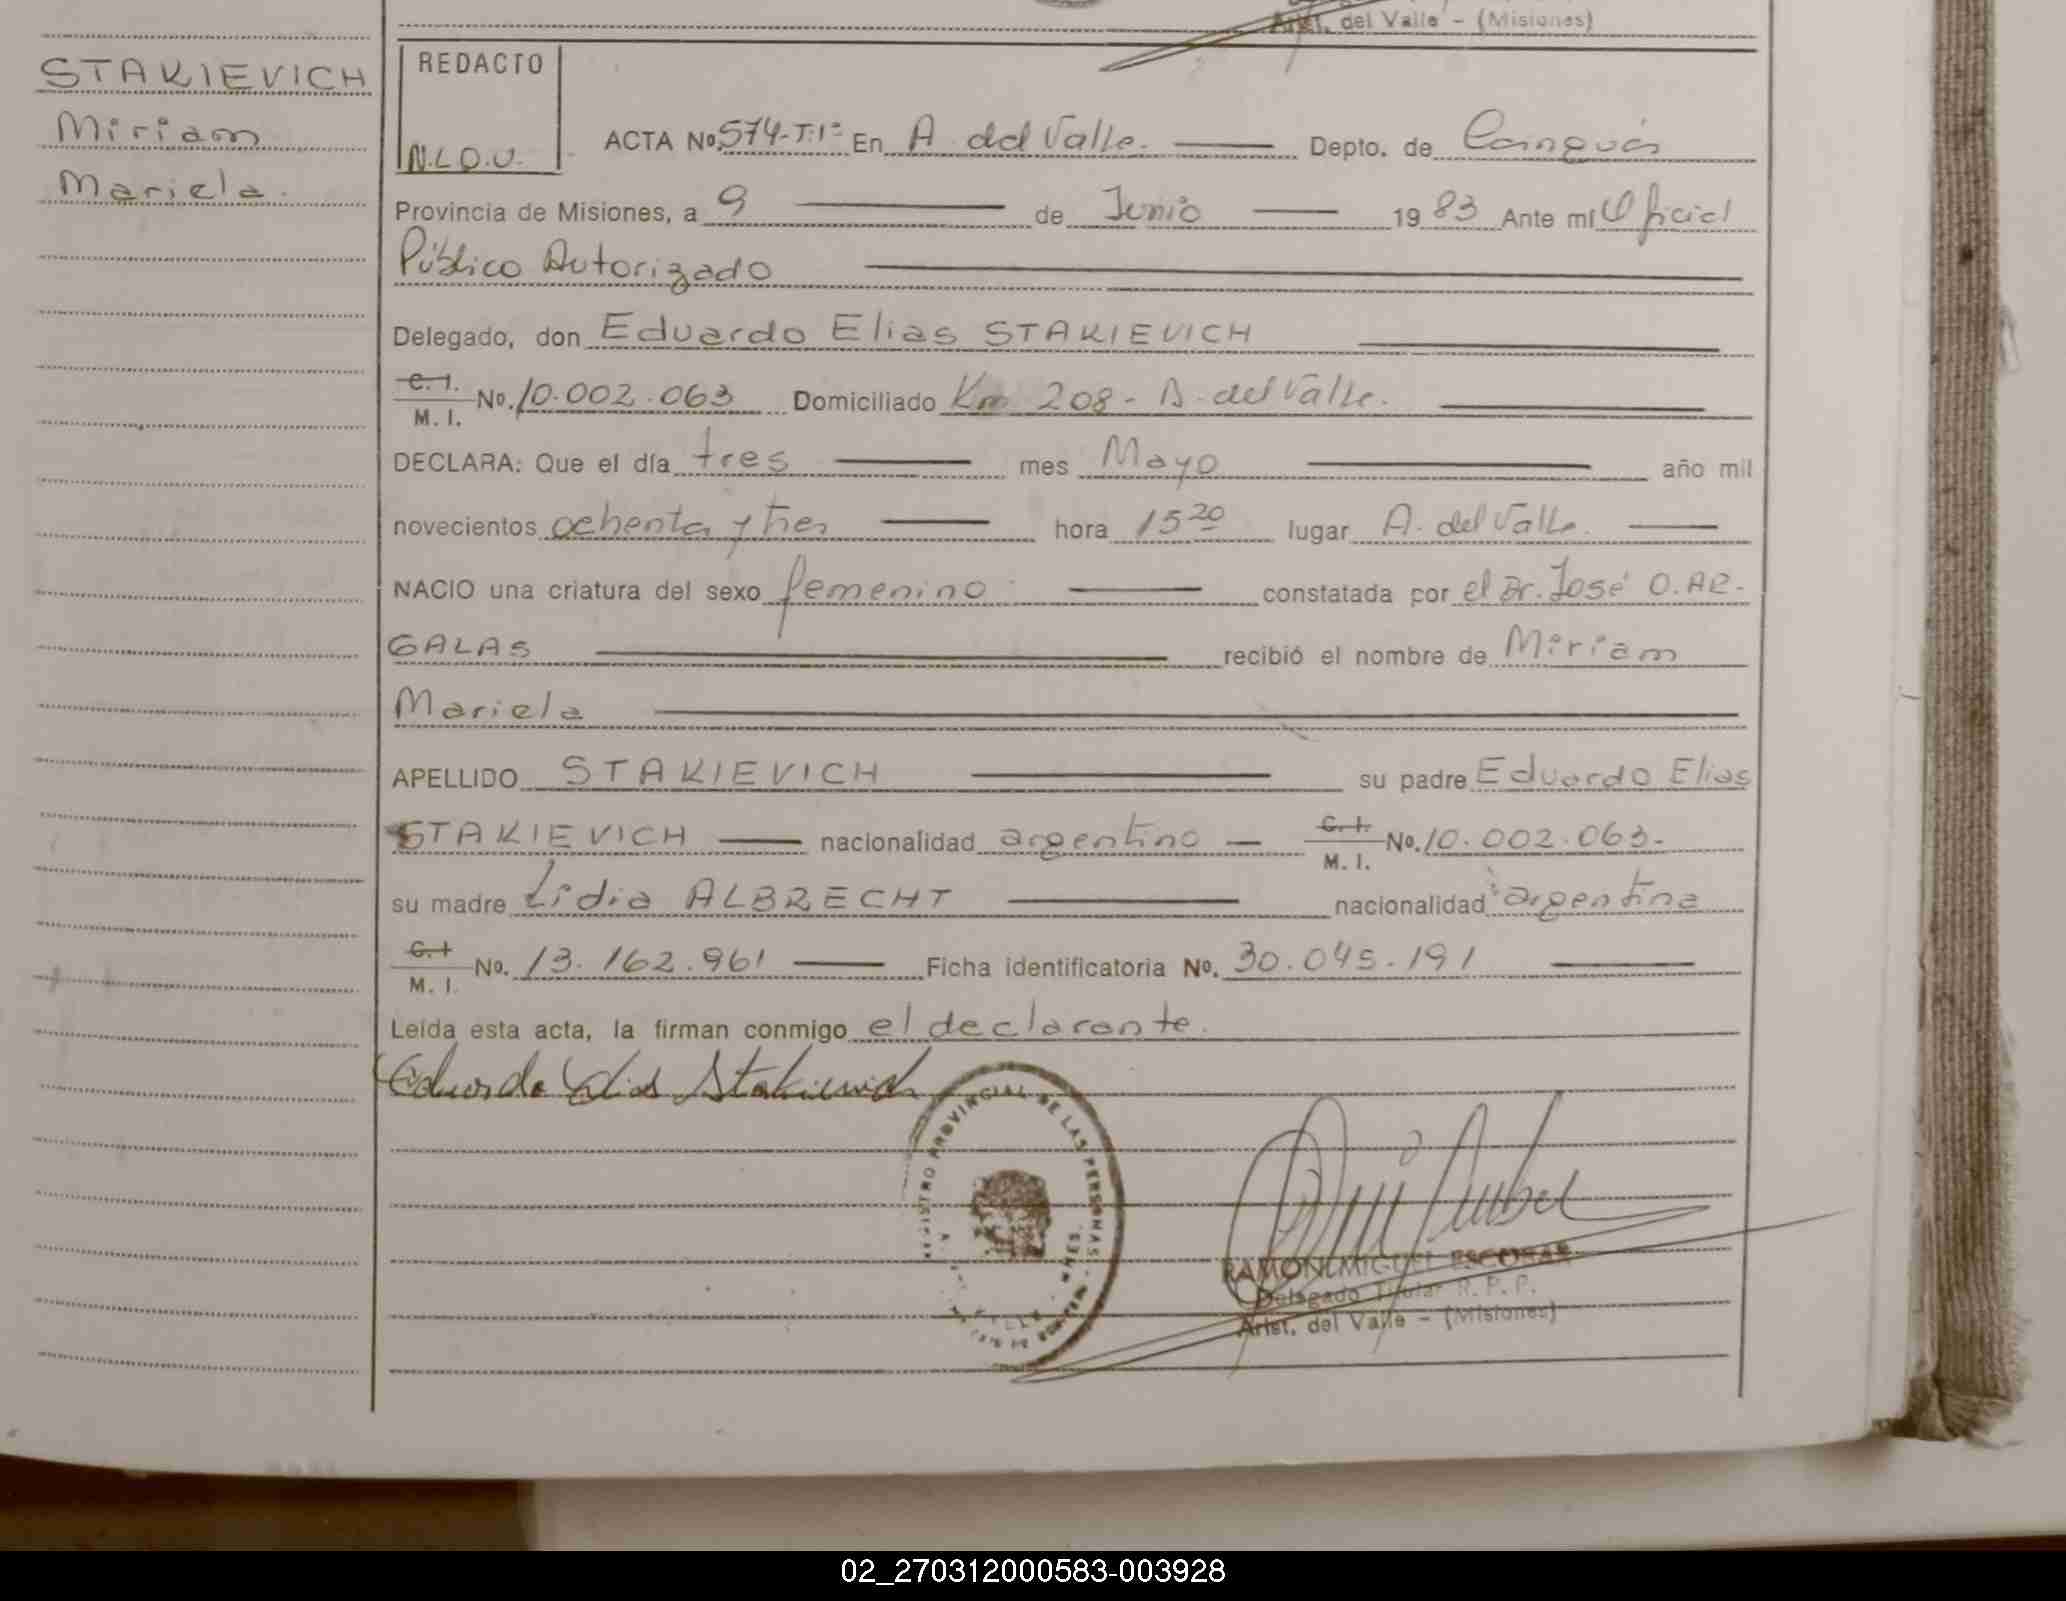 Arist. del Valle - (Misiones)
STAKIEVICH
Miriam
Mariela.
REDACTO
N.L.D.U.
ACTA No. 574-T:1º En A. del Valle. Depto. de Cainguás
Provincia de Misiones, a 9 de Junio 1983 Ante mí Oficial
Público Autorizado
Delegado, don Eduardo Elias STAKIEVICH
C. I.
M. I. No. 10.002.063 Domiciliado Km 208 - A. del Valle.
DECLARA: Que el día tres mes Mayo año mil
novecientos ochenta y tres hora 15 20 lugar A. del Valle.
NACIO una criatura del sexo femenino constatada por el Dr. José O. AR-
GALAS recibió el nombre de Miriam
Mariela
APELLIDO STAKIEVICH su padre Eduardo Elias
STAKIEVICH nacionalidad argentino C. I.
M. I. No. 10.002.063.
su madre Lidia ALBRECHT nacionalidad argentina
C. I
M. I. No. 13.162.961 Ficha identificatoria No. 30.045.191
Leída esta acta, la firman conmigo el declarante.
Eduardo Elias Stakievich
REGISTRO PROVINCIAL DE LAS PERSONAS
RAMON MIGUEL ESCOBAR
Delegado Titular R. P. P.
Arist. del Valle - (Misiones)
02_270312000583-003928